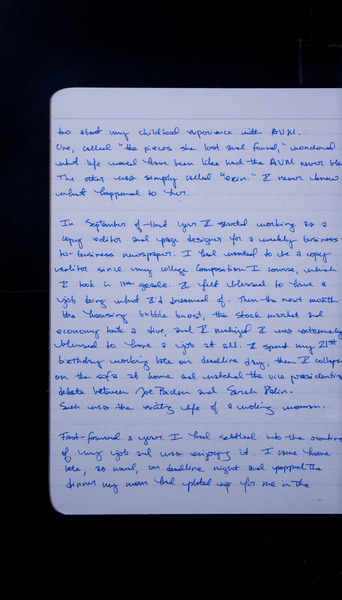 two about my childhood experience with AVM.
One, called "the pieces she lost and found," wondered
what life would have been like had the AVM never
The other was simply called "Erin." I never knew
what happened to her.
In September of that year I started working as a
copy editor and page designer for a weekly business-
to-business newspaper. I had wanted to be a copy
editor since my college Composition I course, which
I took in 11th grade. I felt blessed to have a
job doing what I'd dreamed of. Then the next month
the housing bubble burst, the stock market and
economy took a dive, and I realized I was extremely
blessed to have a job at all. I spent my 21st
birthday working late on deadline day, then I collapsed
on the sofa at home and watched the vice presidential
debate between Joe Biden and Sarah Palin.
Such was the exciting life of a working woman.
Fast-forward a year. I had settled into the routine
of my job and was enjoying it. I came home
late, as usual, on deadline night and popped the
dinner my mom had plated up for me in the